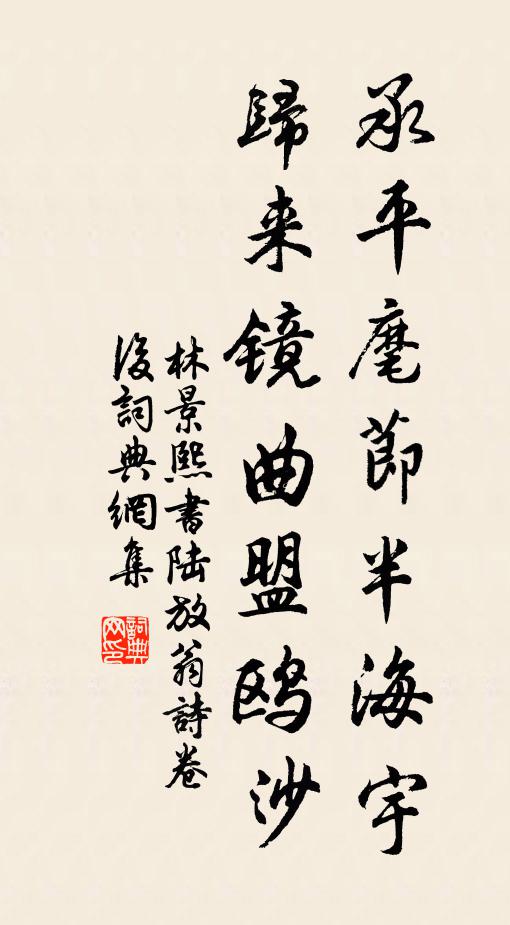 承平麾節半海宇
歸来鏡曲盟鸥沙
林景熙書陆放翁詩卷
後詞典網集
詞典网印